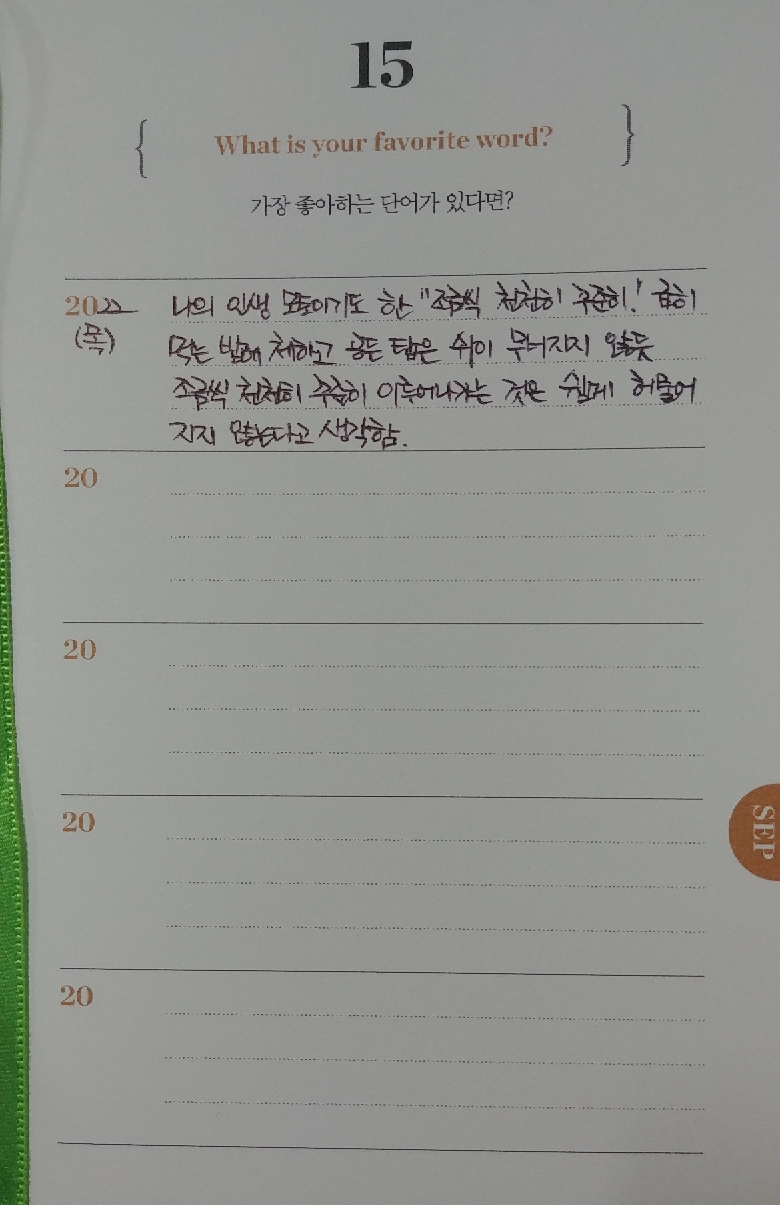 15
{ What is your favorite word? }
가장 좋아하는 단어가 있다면?
2022 나의 인생 모토이기도 한 "조금씩 천천히 꾸준히!" 급히
(목) 먹는 밥에 체하고 공든 탑은 쉬이 무너지지 않듯
조금씩 천천히 꾸준히 이루어나가는 것은 쉽게 허물어
지지 않는다고 생각함.
20
20
20
20
SEP